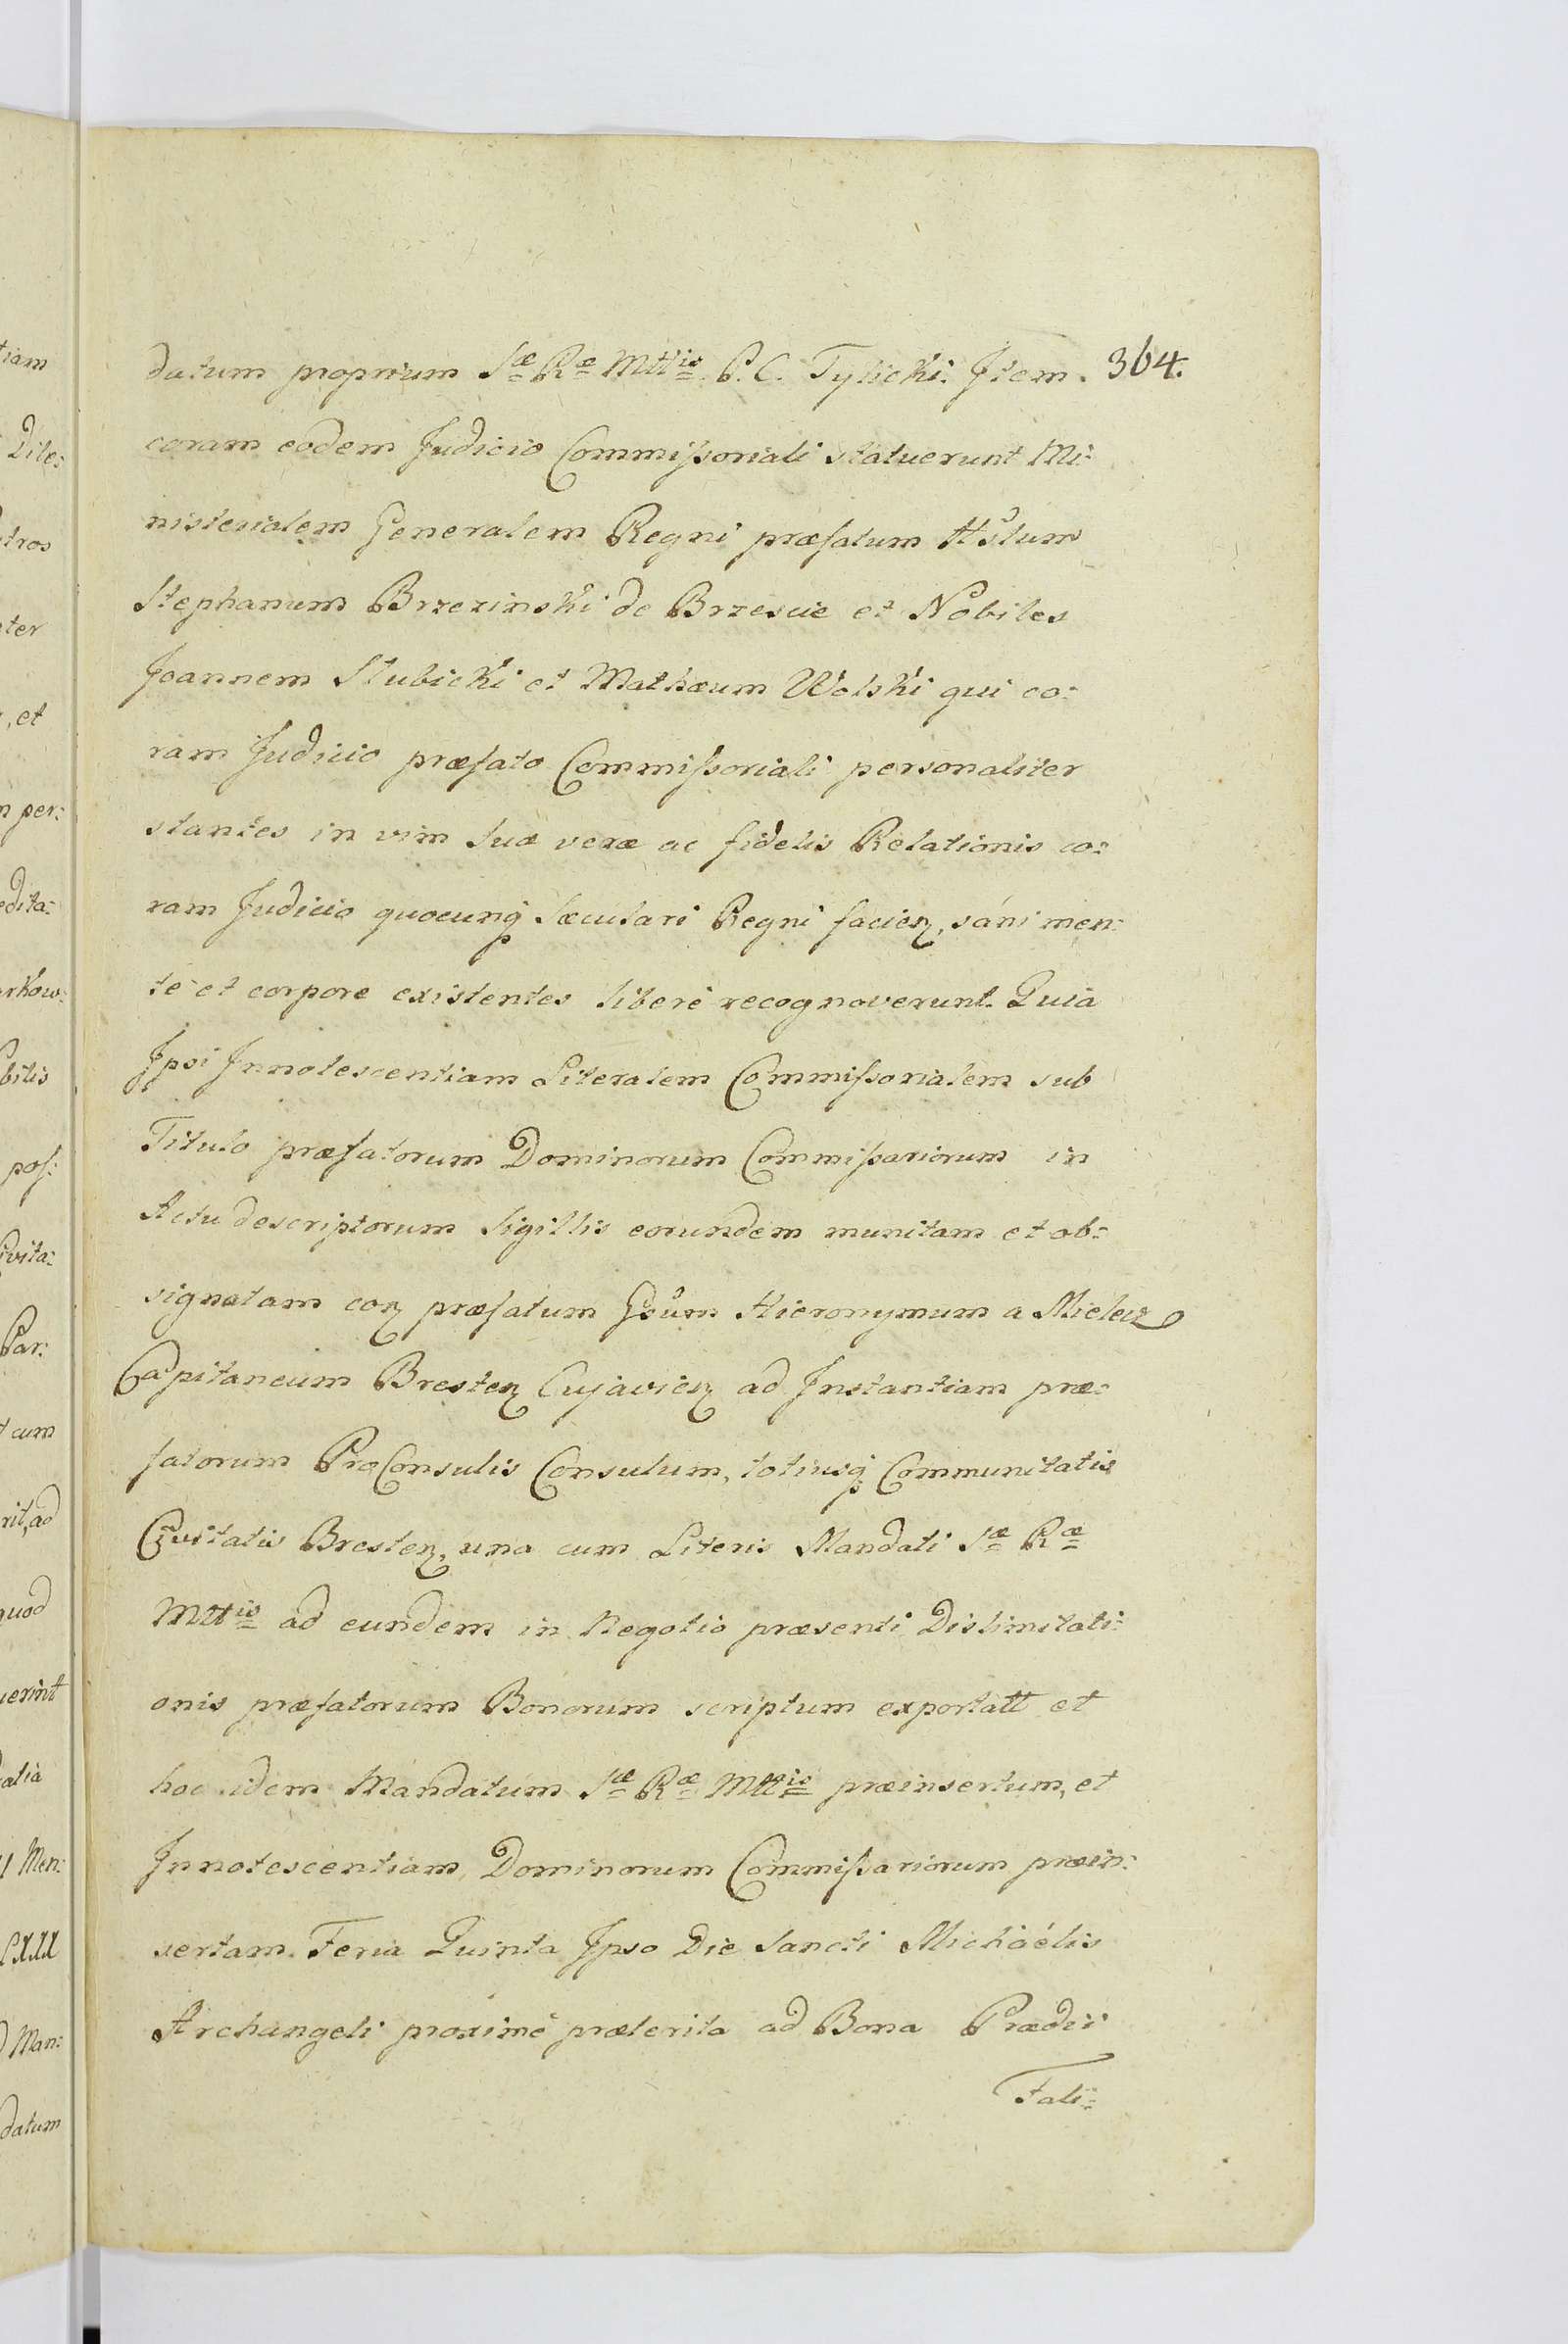 datum proprium Sæ Ræ Mttis P. C. Tylicki. Item. 364.
coram eodem Judicio Commißoriali statuerunt Mi:
nisterialem Generalem Regni præfatum Hstum
Stephanum Brzezinski de Brzescie et Nobiles
Joannem Slubicki et Mathæum Wolski qui co:
ram Judicio præfato Commißoriali personaliter
stantes in vim suæ veræ ac fidelis Relationis co:
ram Judicio quocunq Sæculari Regni facien, sáni men:
te et corpore existentes liberè recognoverunt. Quia
Ipsi Innotescentiam Literalem Commißorialem sub
Titulo præfatorum Dominorum Commißariorum in
Actu descriptorum Sigillis eorundem munitam et ob:
signatam con præfatum Gsum Hieronymum a Mielecz
Capitaneum Bresten Cujavien ad Instantiam præ:
fatorum ProConsulis Consulum, totiusq Communitatis
Civitatis Bresten, una cum Literis Mandati Sæ Ræ
Mttis ad eundem in Negotio præsenti Dislimitati:
onis præfatorum Bonorum scriptum exportatt et
hoc idem Mandatum Sæ Ræ Mttis præinsertum, et
Innotescentiam Dominorum Commißariorum præin:
sertam. Feria Quinta Ipso Die Sancti Michaélis
Archangeli proximè præterita ad Bona Prædii
Fali:
tiam
Dile:
tros
ter
, et
n per:
edita:
rkow:
bilis
pos:
ivita:
Par:
t cum
rit, ad
quod
uerint
alia
Men:
LXXX
Man:
datum